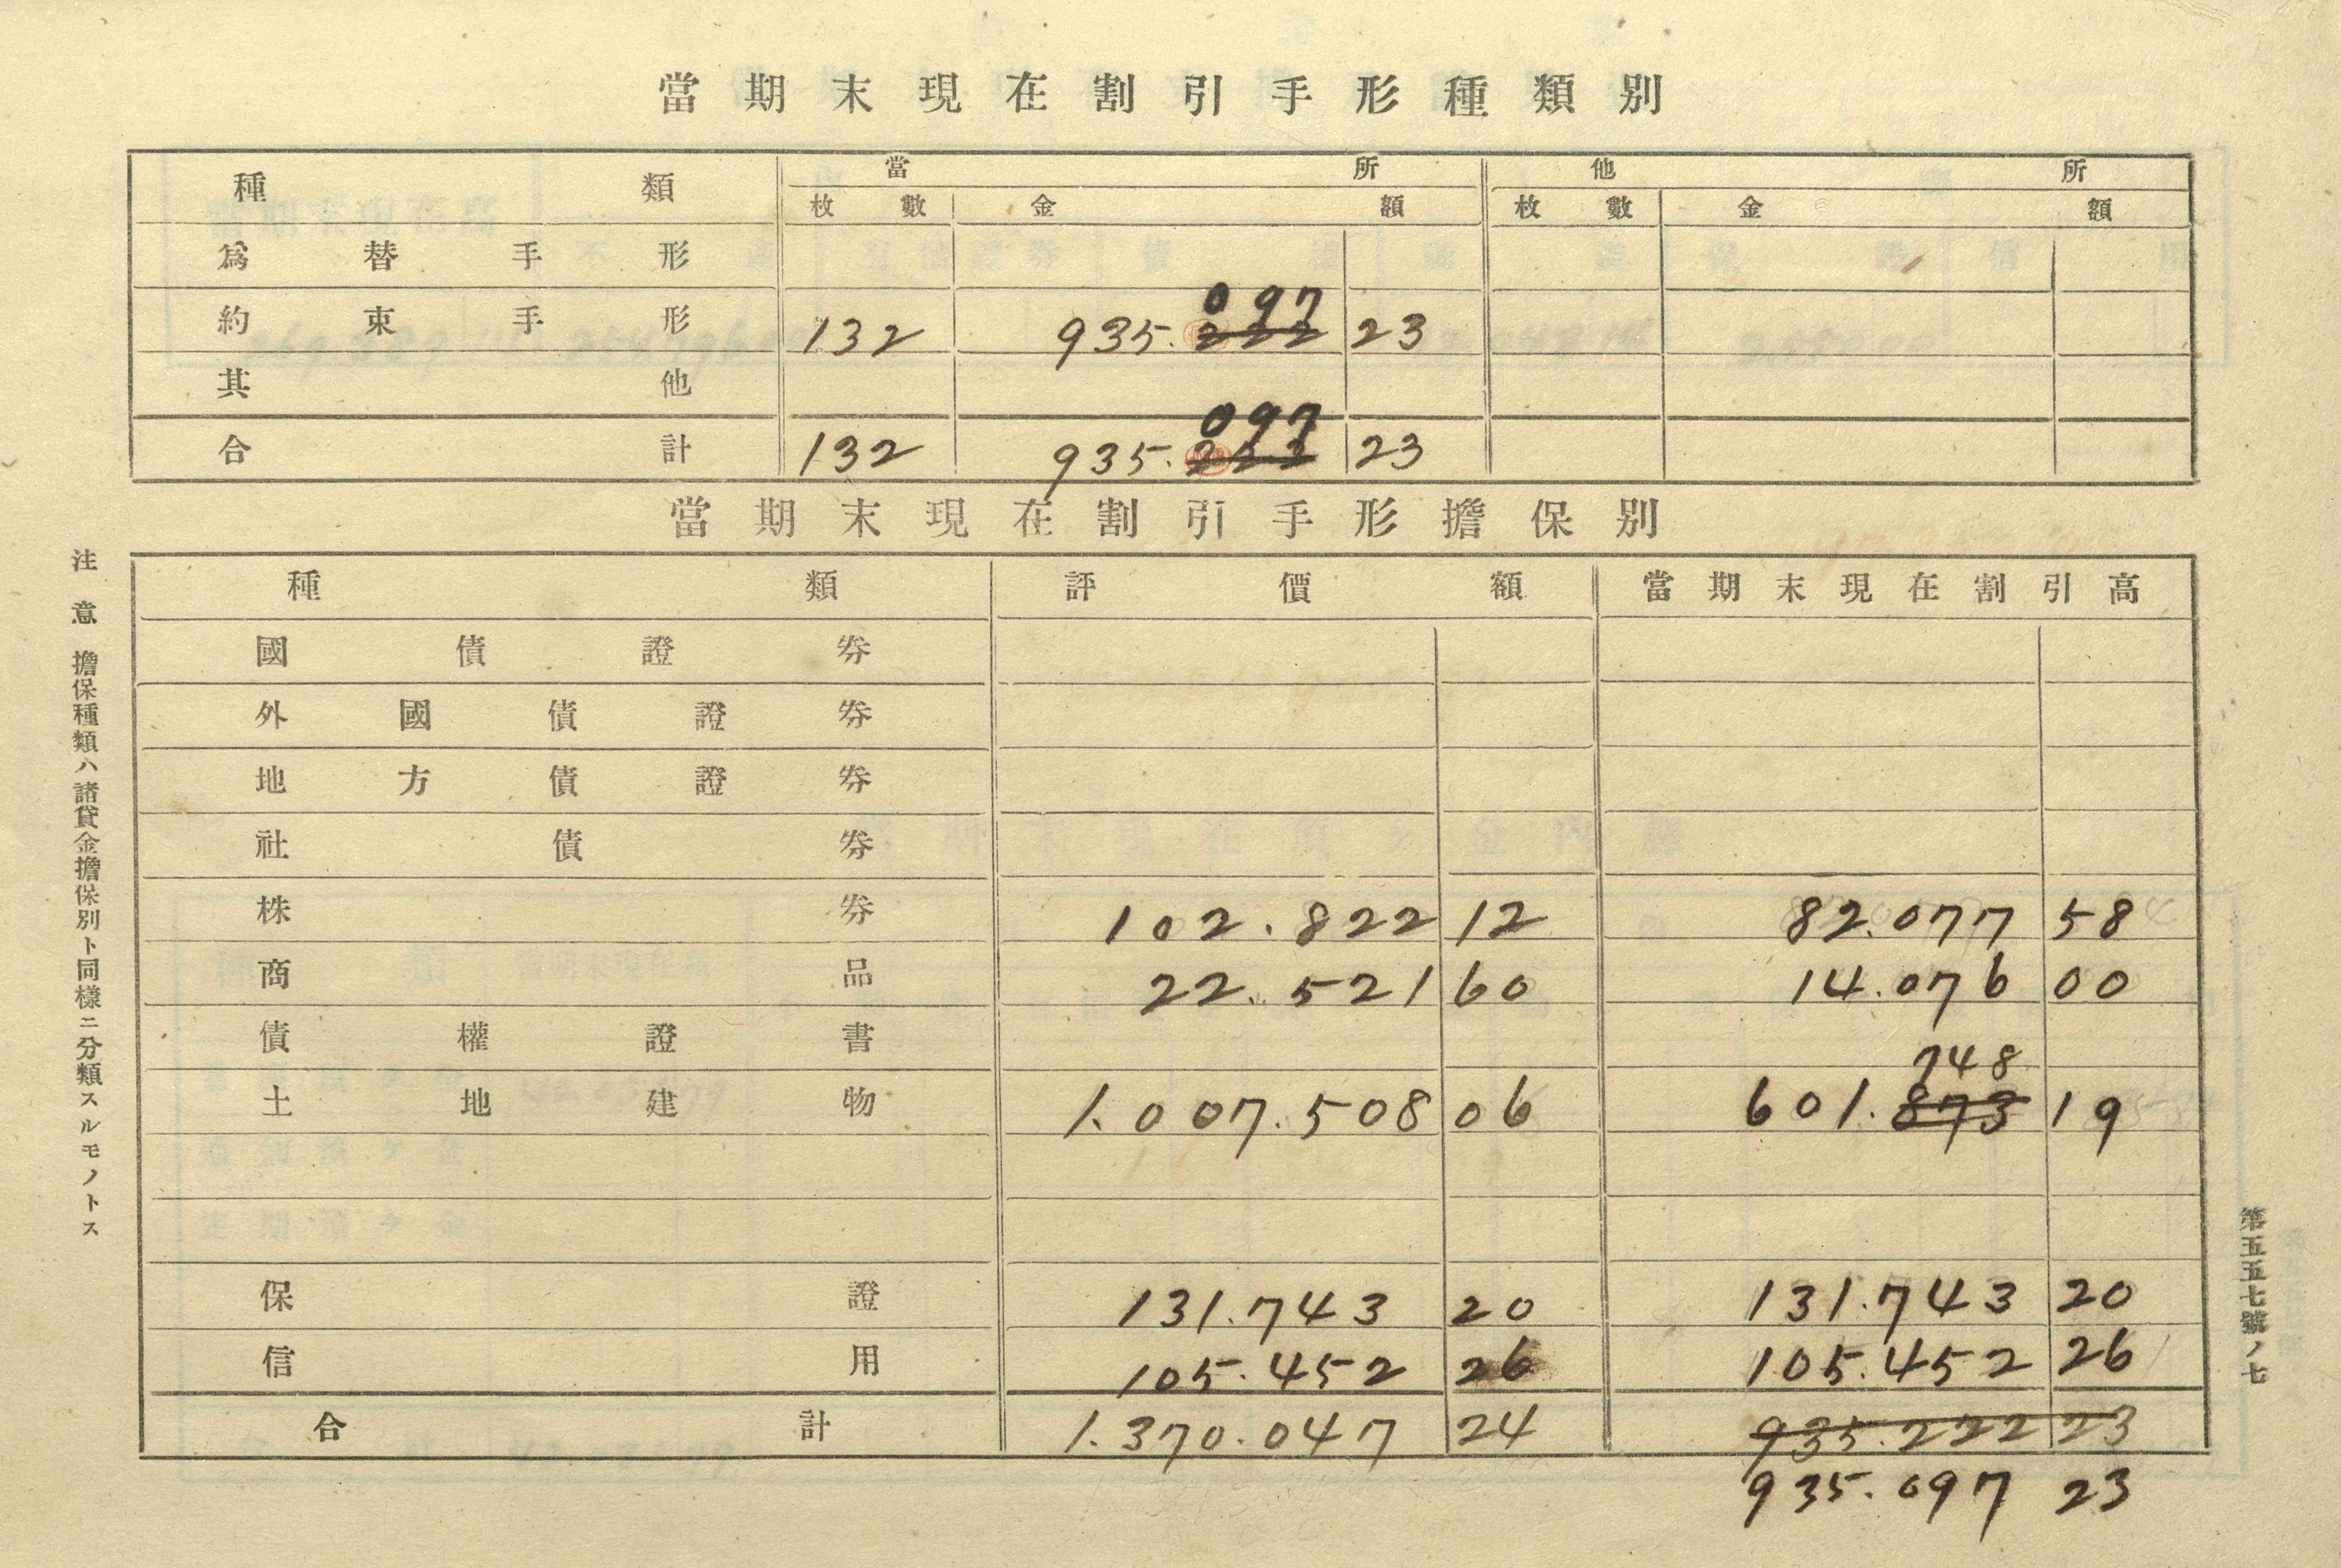 當期末現在割引手形種類別
種類 當所 他所
枚數 金額 枚數 金額
爲替手形
097
約束手形 132 935.222 23
其他
097
合計 132 935.222 23
當期末現在割引手形擔保別
種類 評價額 當期末現在割引高
國債證券
外國債證券
地方債證券
社債券
株券 102.822 12 82.077 58
商品 22.521 60 14.076 00
債權證書
748
土地建物 1.007.508 06 601.873 19
保證 131.743 20 131.743 20
信用 105.452 26 105.452 26
合計 1.370.047 24 935.222 23
935.097 23
注意 擔保種類ハ諸貸金擔保別ト同樣ニ分類スルモノトス
第五五七號ノ七